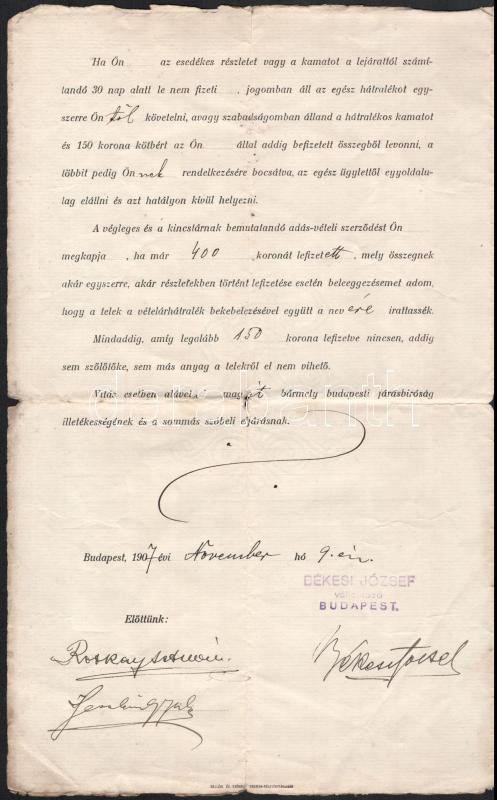 Ha Ön az esedékes részletet vagy a kamatot a lejárattól számi-
tandó 30 nap alatt le nem fizeti , jogomban áll az egész hátralékot egy-
szerre Ön től követelni, avagy szabadságomban álland a hátralékos kamatot
és 150 korona kötbért az Ön által addig befizetett összegből levonni, a
többit pedig Ön nek rendelkezésére bocsátva, az egész ügylettől egyoldalu-
lag elállni és azt hatályon kívül helyezni.
A végleges és a kincstárnak bemutatandó adás-vételi szerződést Ön
megkapja , ha már 400 koronát lefizetett, mely összegnek
akár egyszerre, akár részletekben történt lefizetése esetén beleegyezésemet adom,
hogy a telek a vételárhátralék bekebelezésével együtt a nevére irattassék.
Mindaddig, amíg legalább 150 korona lefizetve nincsen, addig
sem szőlőtőke, sem más anyag a telekről el nem vihető.
Vitás esetben aláveti magát bármely budapesti járásbiróság
illetékességének és a sommás szóbeli eljárásnak.
darabanth
Budapest, 1907 évi November hó 9.-én.
BÉKESI JÓZSEF
BUDAPEST.
Előttünk: